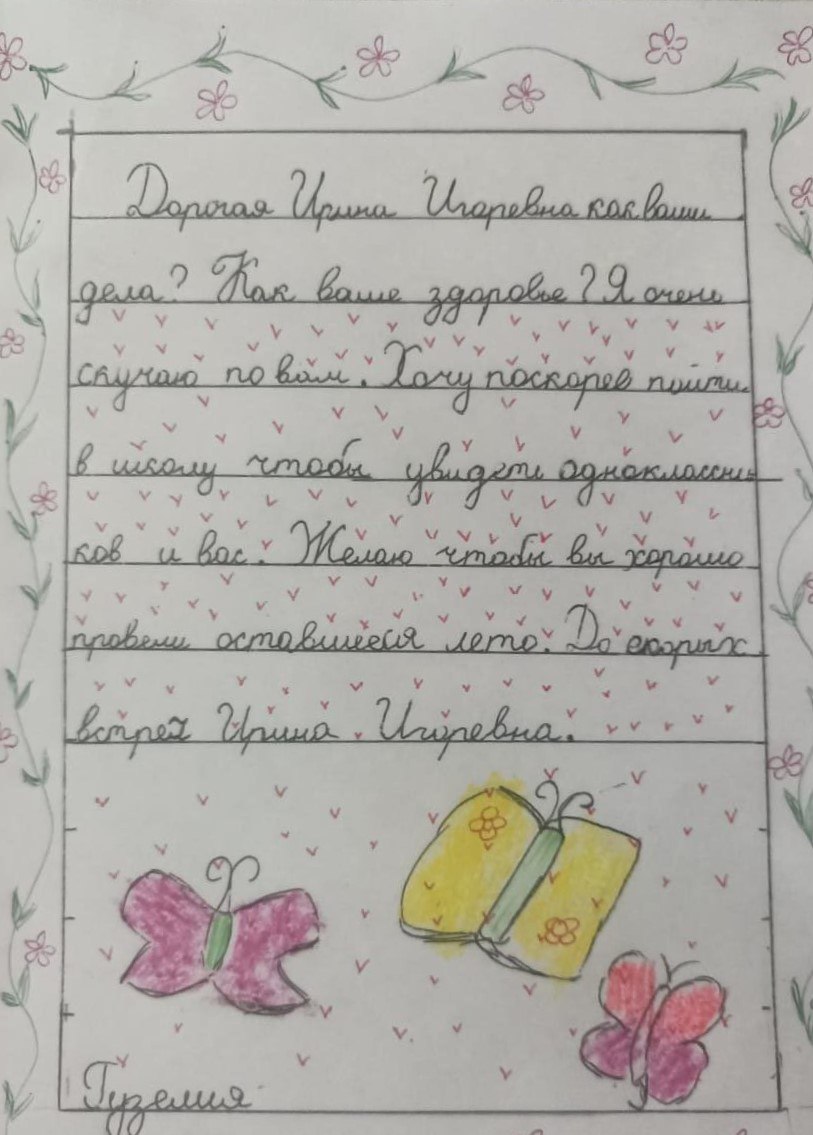 Дорогая Ирина Игоревна как ваши
дела? Как ваше здоровье? Я очень
скучаю по вам. Хочу поскорее пойти
в школу чтобы увидеть одноклассни
ков и вас. Желаю чтобы вы хорошо
провели оставшееся лето. До скорых
встреч Ирина Игоревна.
Гузелия